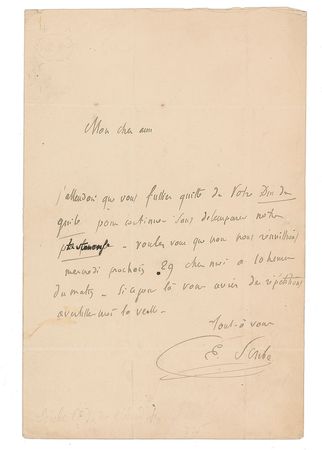 Mon cher ami
j'attendois que vous fussiez quitte de votre Din da
quite pour continuer sans désemparer notre
voulez vous que nous nous réunissions
mercredi prochain 29 chez moi à 10 heures
du matin - si ce jour là vous aviez des répétitions
avertissez moi la veille -
Tout-à vous
E Scribe